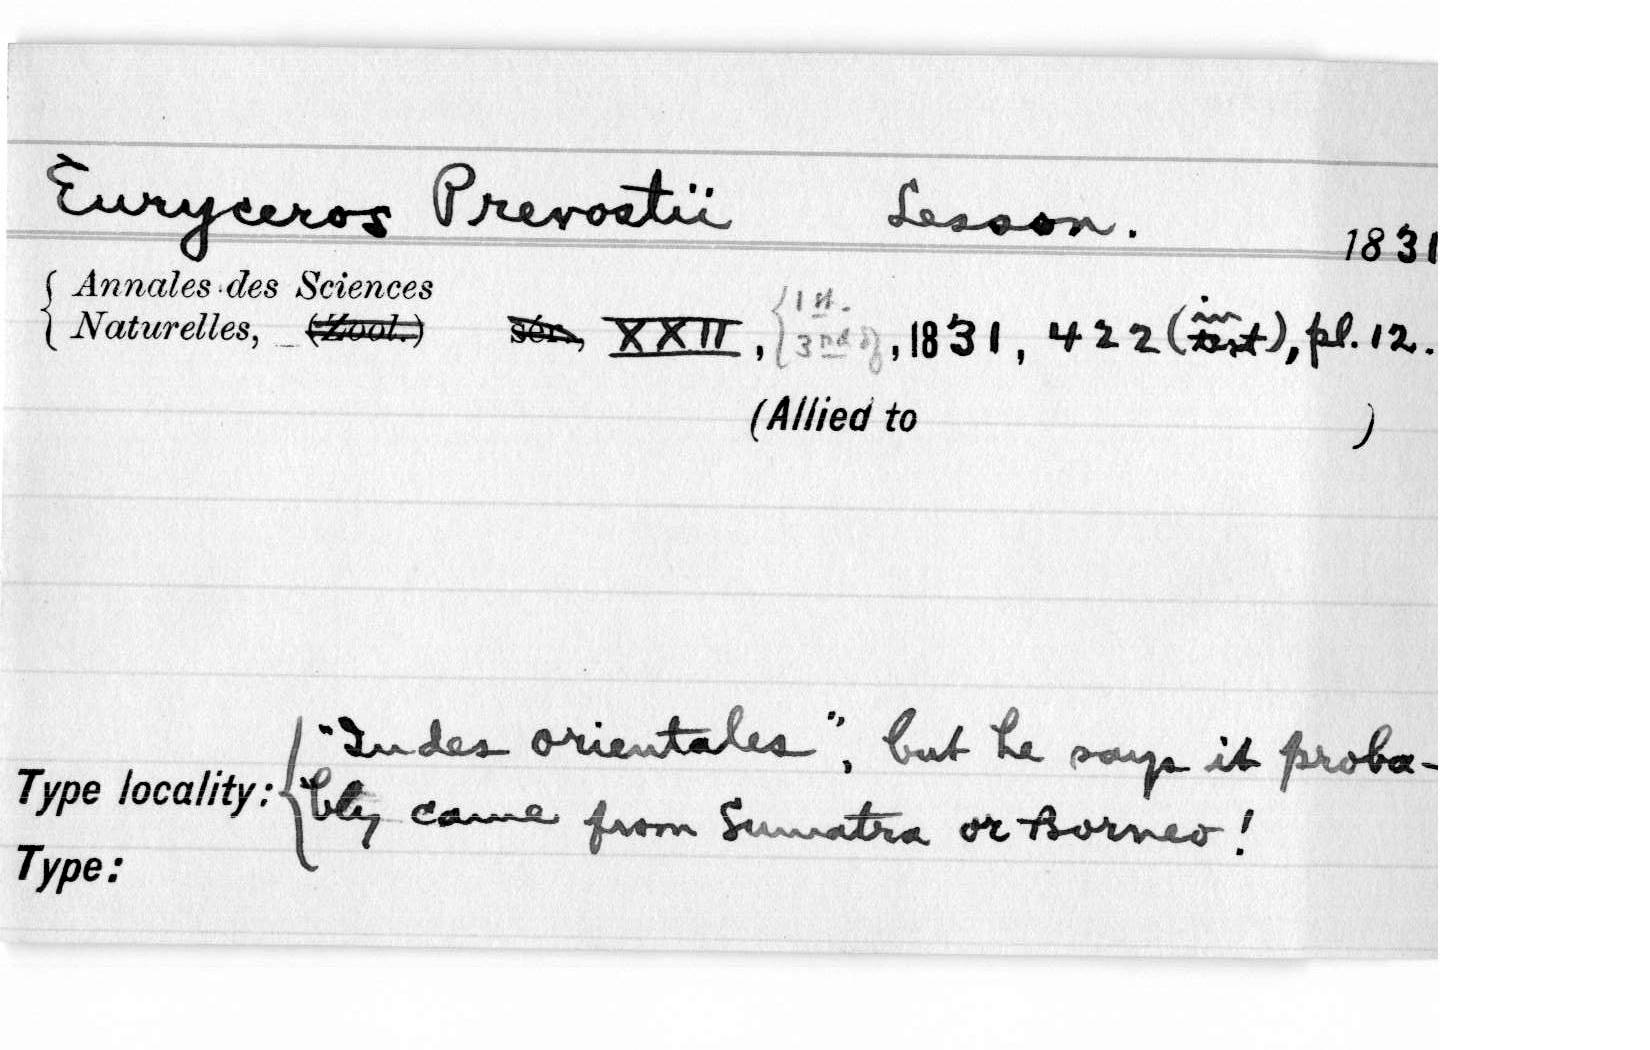 Euryceros Prevostii Lesson. 1831
Annales des Sciences
Naturelles, (Zool.) sér., XXII, {1st. 3rd}, 1831, 422 (in text), pl. 12.
(Allied to )
"Indes orientales", but he says it proba-
Type locality: bly came from Sumatra or Borneo!
Type: